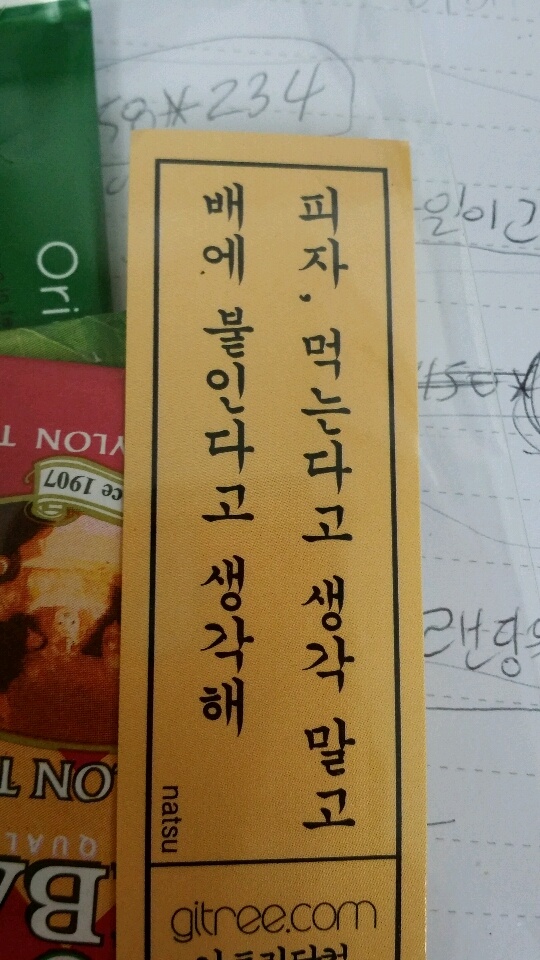 피자. 먹는다고 생각 말고
배에 붙인다고 생각해
natsu
gitree.com
Ori
YLON T
ce 1907
ON T
QUAL
BA
59*234
일이고
450*